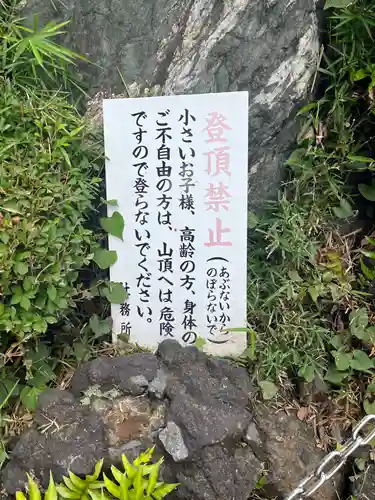 登頂禁止
（あぶないから
のぼらないで）
小さいお子様、高齢の方、身体の
ご不自由の方は、山頂へは危険
ですので登らないでください。
務所